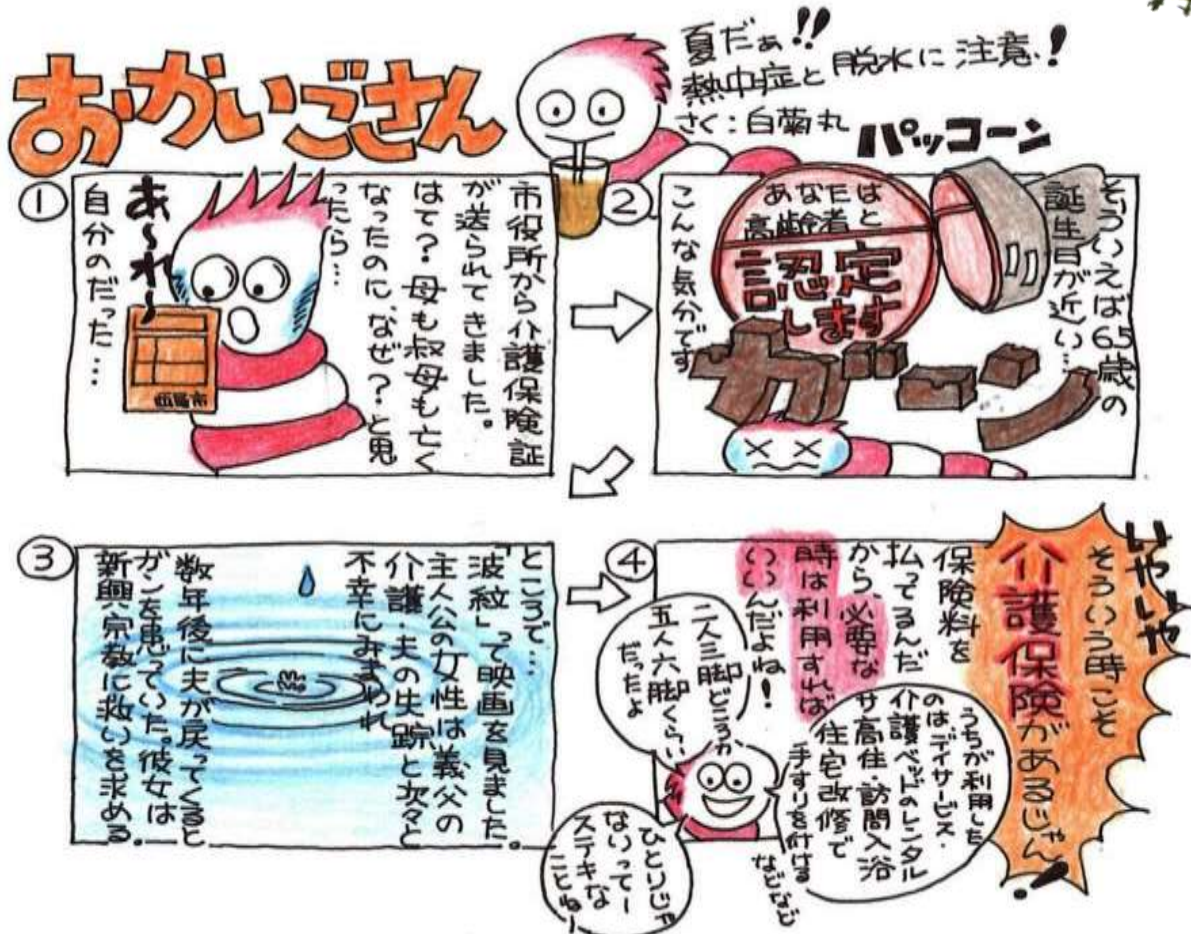 おかいごさん
夏だぁ!!
熱中症と脱水に注意!
さく：白菊丸
①
市役所から介護保険証
が送られてきました。
はて？母も叔母も亡く
なったのに、なぜ？と思
ったら…
あ〜れ〜
自分のだった…
②
パッコーン
そういえば65歳の
誕生日が近い…
あなたは
高齢者と
認定
します
ガーン
こんな気分です
③
ところで…
「波紋」って映画を見ました。
主人公の女性は義父の
介護・夫の失踪と次々と
不幸にみまわれ
数年後に夫が戻ってくると
ガンを患っていた。彼女は
新興宗教に救いを求める。
④
いやいや
そういう時こそ
介護保険があるじゃん!
保険料を
払ってるんだ
から、必要な
時は利用すれば
いいんだよね!
うちが利用した
のはデイサービス・
介護ベッドのレンタル
サ高住・訪問入浴
住宅改修で
手すりを付ける
などなど
二人三脚どころか
五人六脚くらい
だったよ
ひとりじゃ
ないってー
ステキな
ことねー